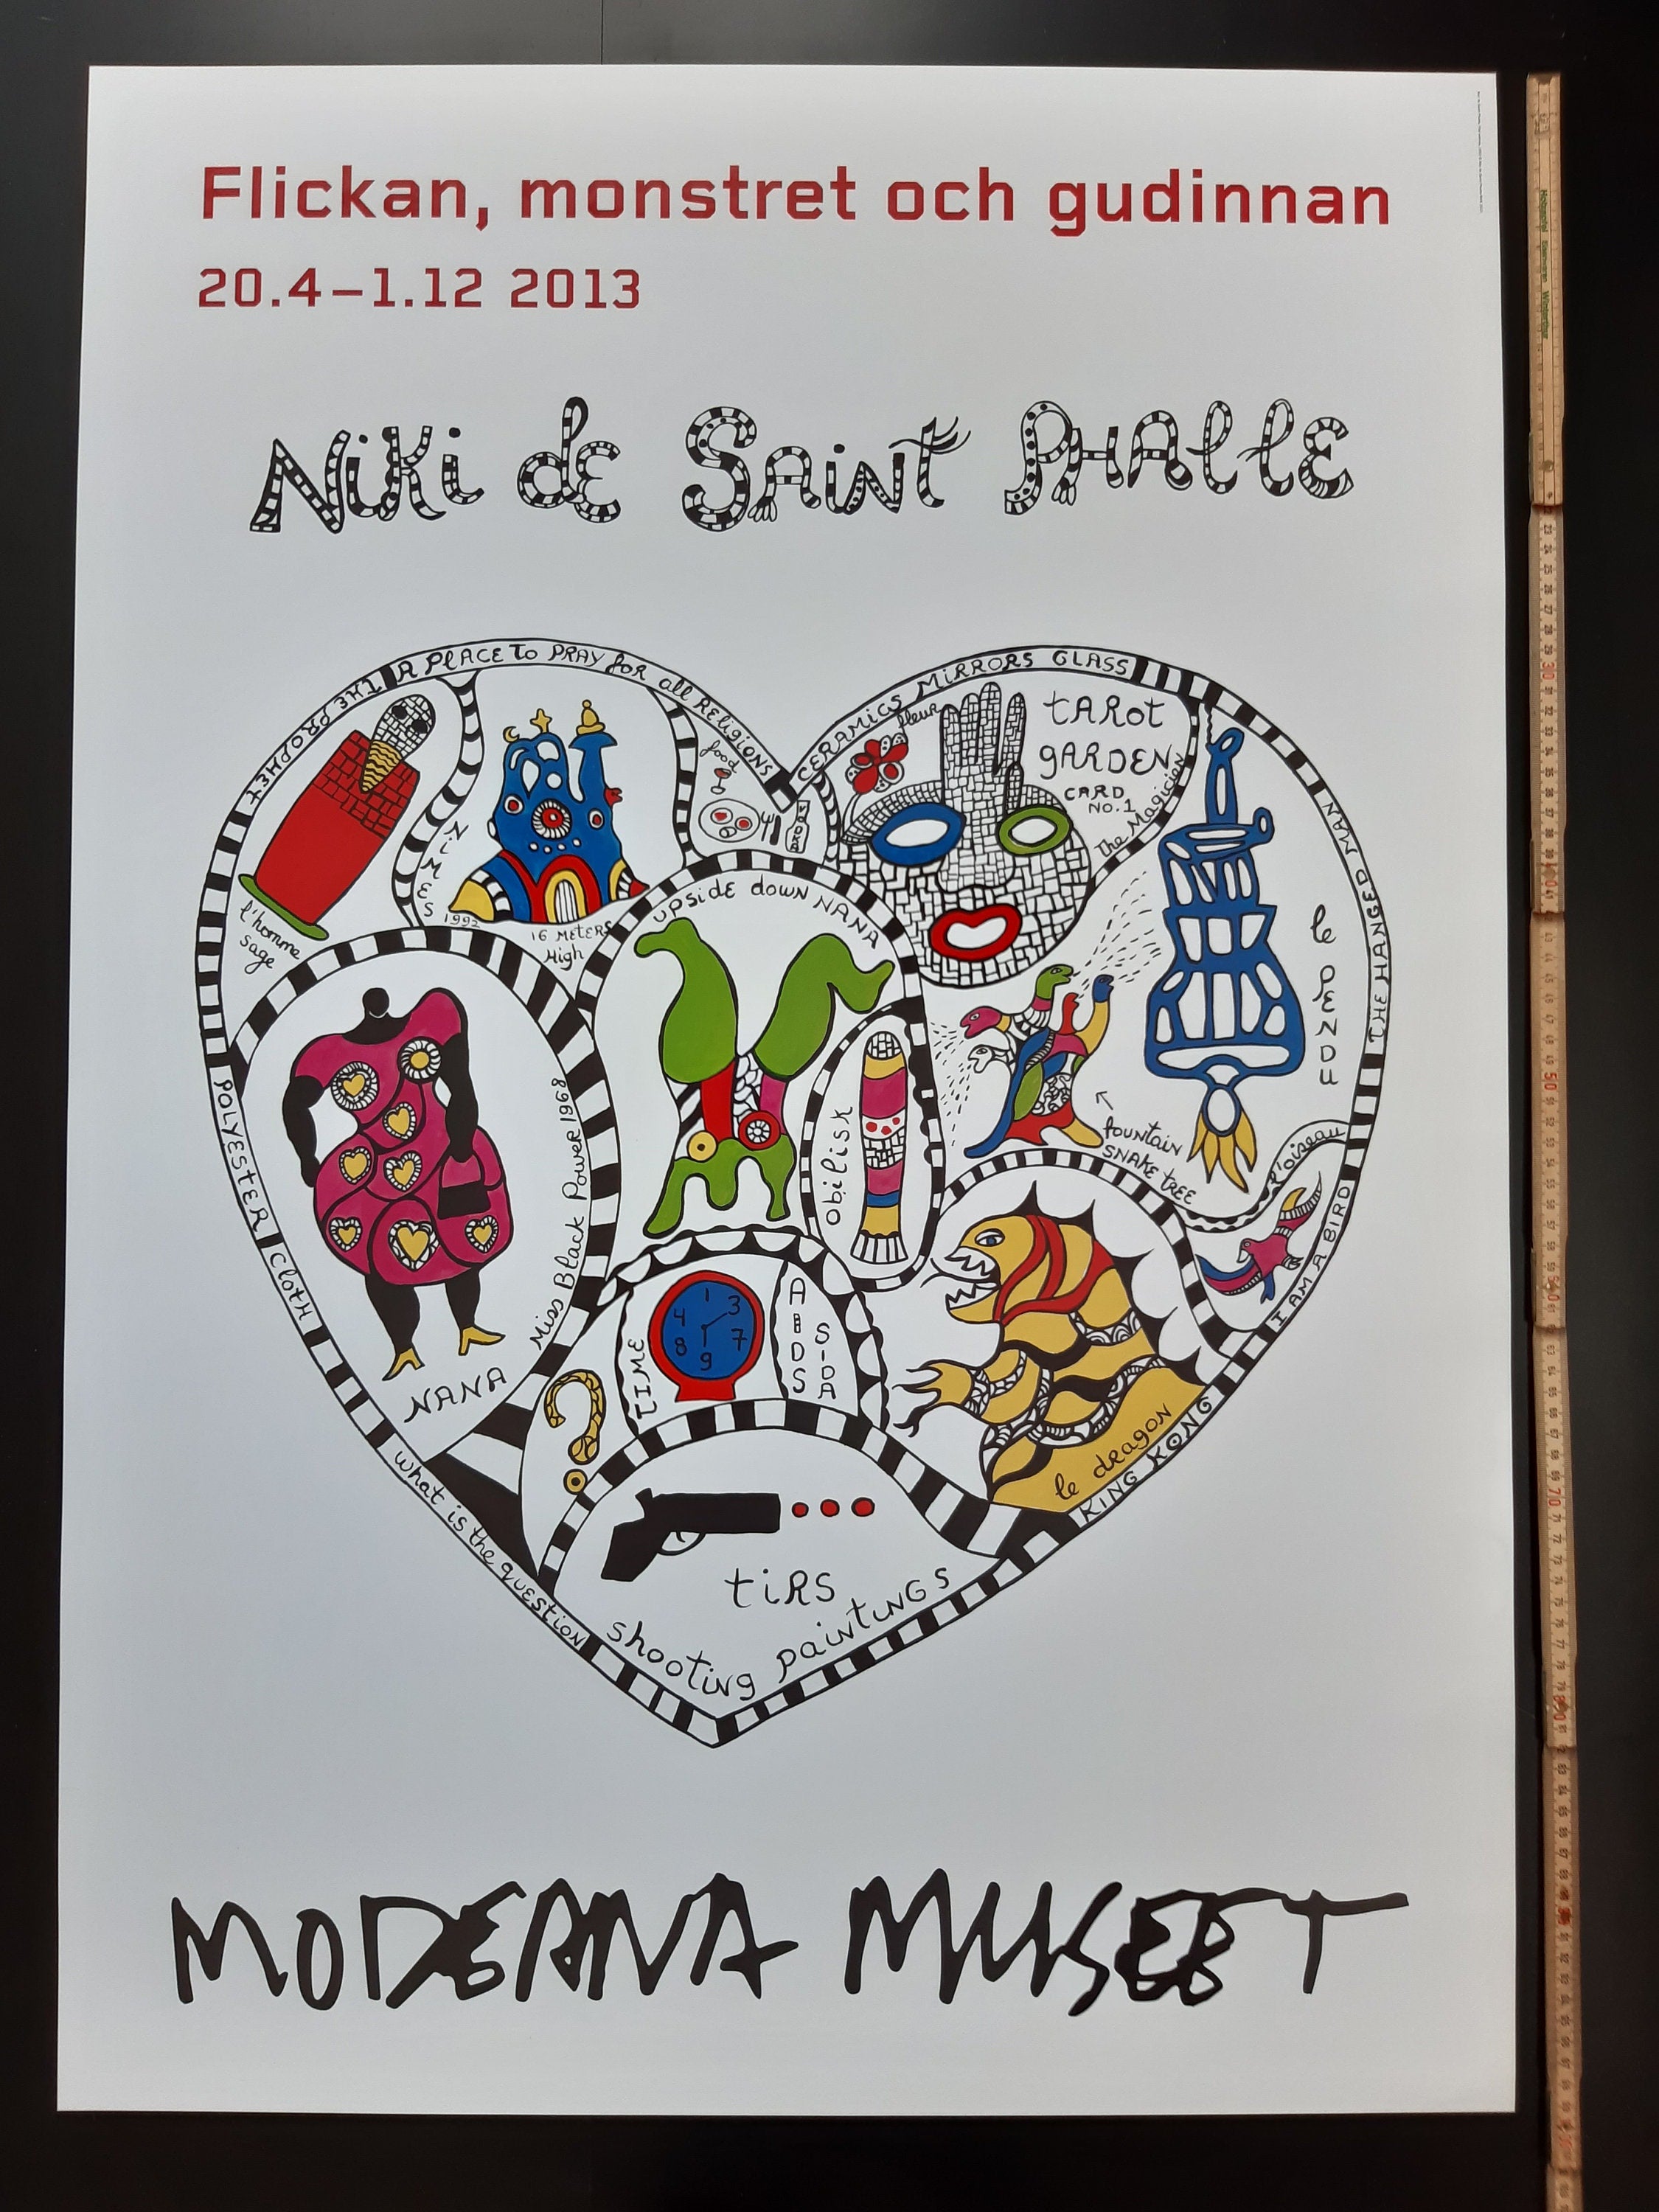 Flickan, monstret och gudinnan
20.4–1.12 2013
Niki de Saint Phalle
THE PROPHET
A PLACE TO PRAY for all RELIGIONS
CERAMICS MIRRORS GLASS
l'homme
sage
NIMES 1992
16 METERS
High
food
VODKA
fleur
TAROT
GARDEN
CARD
NO. 1
The Magician
THE HANGED MAN
le PENDU
UPSIDE down NANA
fountain
SNAKE TREE
Obilisk
l'oiseau
I AM A BIRD
POLYESTER
Cloth
Miss Black Power 1968
NANA
TIME
1
3
4
7
8
9
AIDS
SIDA
le dragon
KING KONG
what is the question
tiRS
shooting paintings
MODERNA MUSEET
Holzgefel Isemann Winterthur